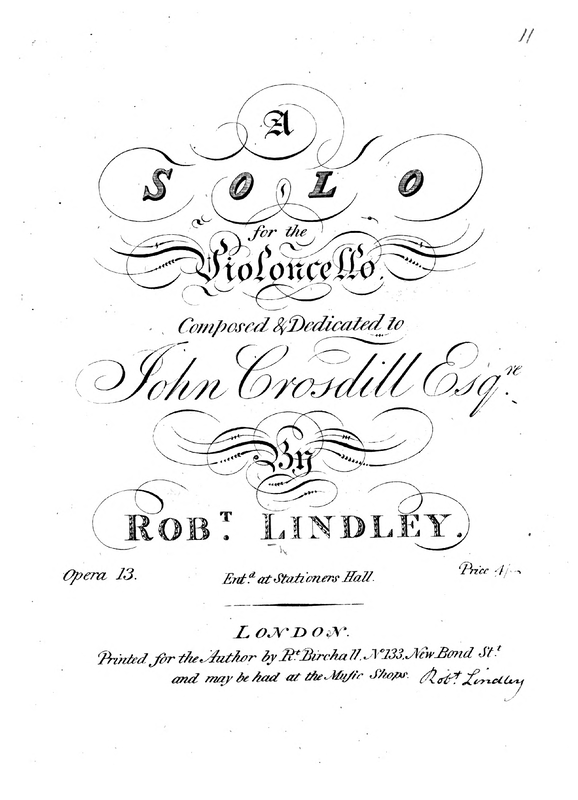 11
A
SOLO
for the
Violoncello.
Composed & Dedicated to
John Crosdill Esqre.
By
ROBT. LINDLEY.
Opera 13.
Entd. at Stationers Hall.
Price 4/-
LONDON.
Printed for the Author by Rt. Birchall, No. 133, New Bond Stt.
and may be had at the Music Shops.
Robt Lindley